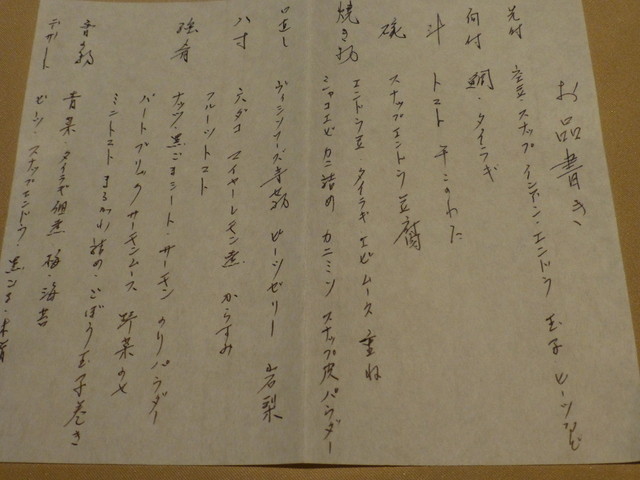 お品書き
先付 空豆・スナップ インドン・エンドウ 玉子 ビーツなど
向付 鯛・タイラギ
斗 トマト 干このわた
碗 スナップエンドウ豆腐
焼き物 エンドウ豆・タイラギ エビ ムース 重ね
シャコエビ カニ詰め カニミソ スナップ皮パウダー
口直し ビーツゼリー 岩梨
八寸 穴ダコ マイヤーレモン煮 からすみ
フルーツトマト
強肴 ナッツ・黒ごまシート・サーモン のりパウダー
パートブリックサーモンムース 野菜のせ
ミニトマト 詰め・ごぼう玉子巻き
青菜・タイラギ佃煮 梅・海苔
デザート スナップエンドウ